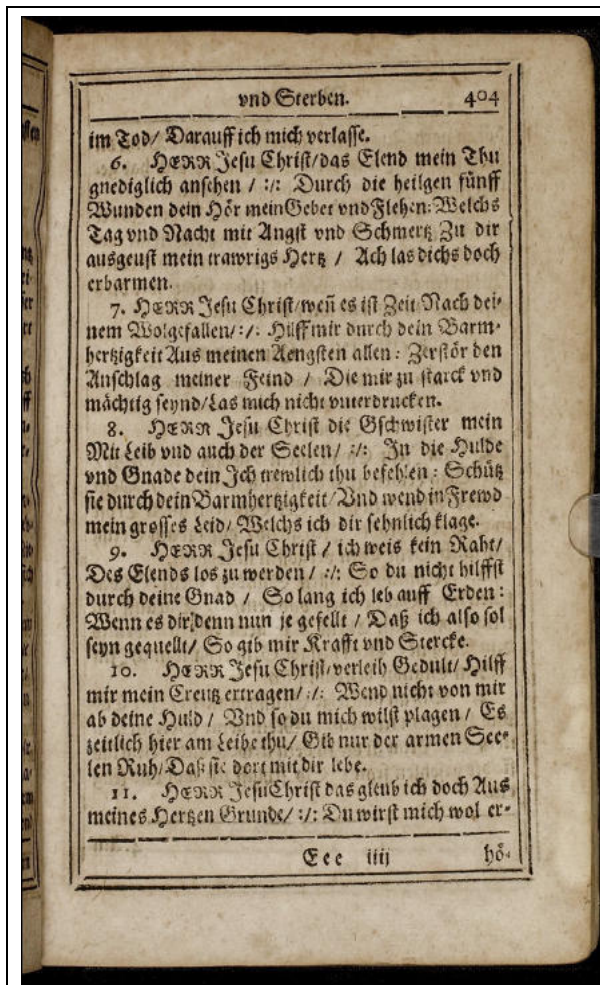 vnd Sterben. 404
im Tod/ Darauff ich mich verlasse.
6. HERR Jesu Christ/das Elend mein Thu
gnediglich ansehen / :/: Durch die heilgen fünff
Wunden dein Hör mein Gebet vnd Flehen: Welchs
Tag vnd Nacht mit Angst vnd Schmertz Zu dir
ausgeust mein trawrigs Hertz / Ach las dichs doch
erbarmen.
7. HERR Jesu Christ/weñ es ist Zeit Nach dei-
nem Wolgefallen/:/: Hilff mir durch dein Barm-
hertzigkeit Aus meinen Aengsten allen: Zerstör den
Anschlag meiner Feind / Die mir zu starck vnd
mächtig seynd/Las mich nicht vnterdrucken.
8. HERR Jesu Christ die Gschwister mein
Mit Leib vnd auch der Seelen/ :/: In die Hulde
vnd Gnade dein Ich trewlich thu befehlen: Schütz
sie durch dein Barmhertzigkeit/Vnd wend in Frewd
mein grosses Leid/ Welchs ich dir sehnlich klage.
9. HERR Jesu Christ / ich weis kein Raht/
Des Elends los zu werden / :/: So du nicht hilffst
durch deine Gnad / So lang ich leb auff Erden:
Wenn es dir denn nun je gefellt / Daß ich also sol
seyn gequellt/ So gib mir Krafft vnd Stercke.
10. HERR Jesu Christ/verleih Gedult/ Hilff
mir mein Creutz ertragen/ :/: Wend nicht von mir
ab deine Huld / Vnd so du mich wilst plagen / Es
zeitlich hier am Leibe thu/ Gib nur der armen See-
len Ruh/Daß sie dort mit dir lebe.
11. HERR Jesu Christ das gleub ich doch Aus
meines Hertzen Grunde/ :/: Du wirst mich wol er-
Eee iiij hö-